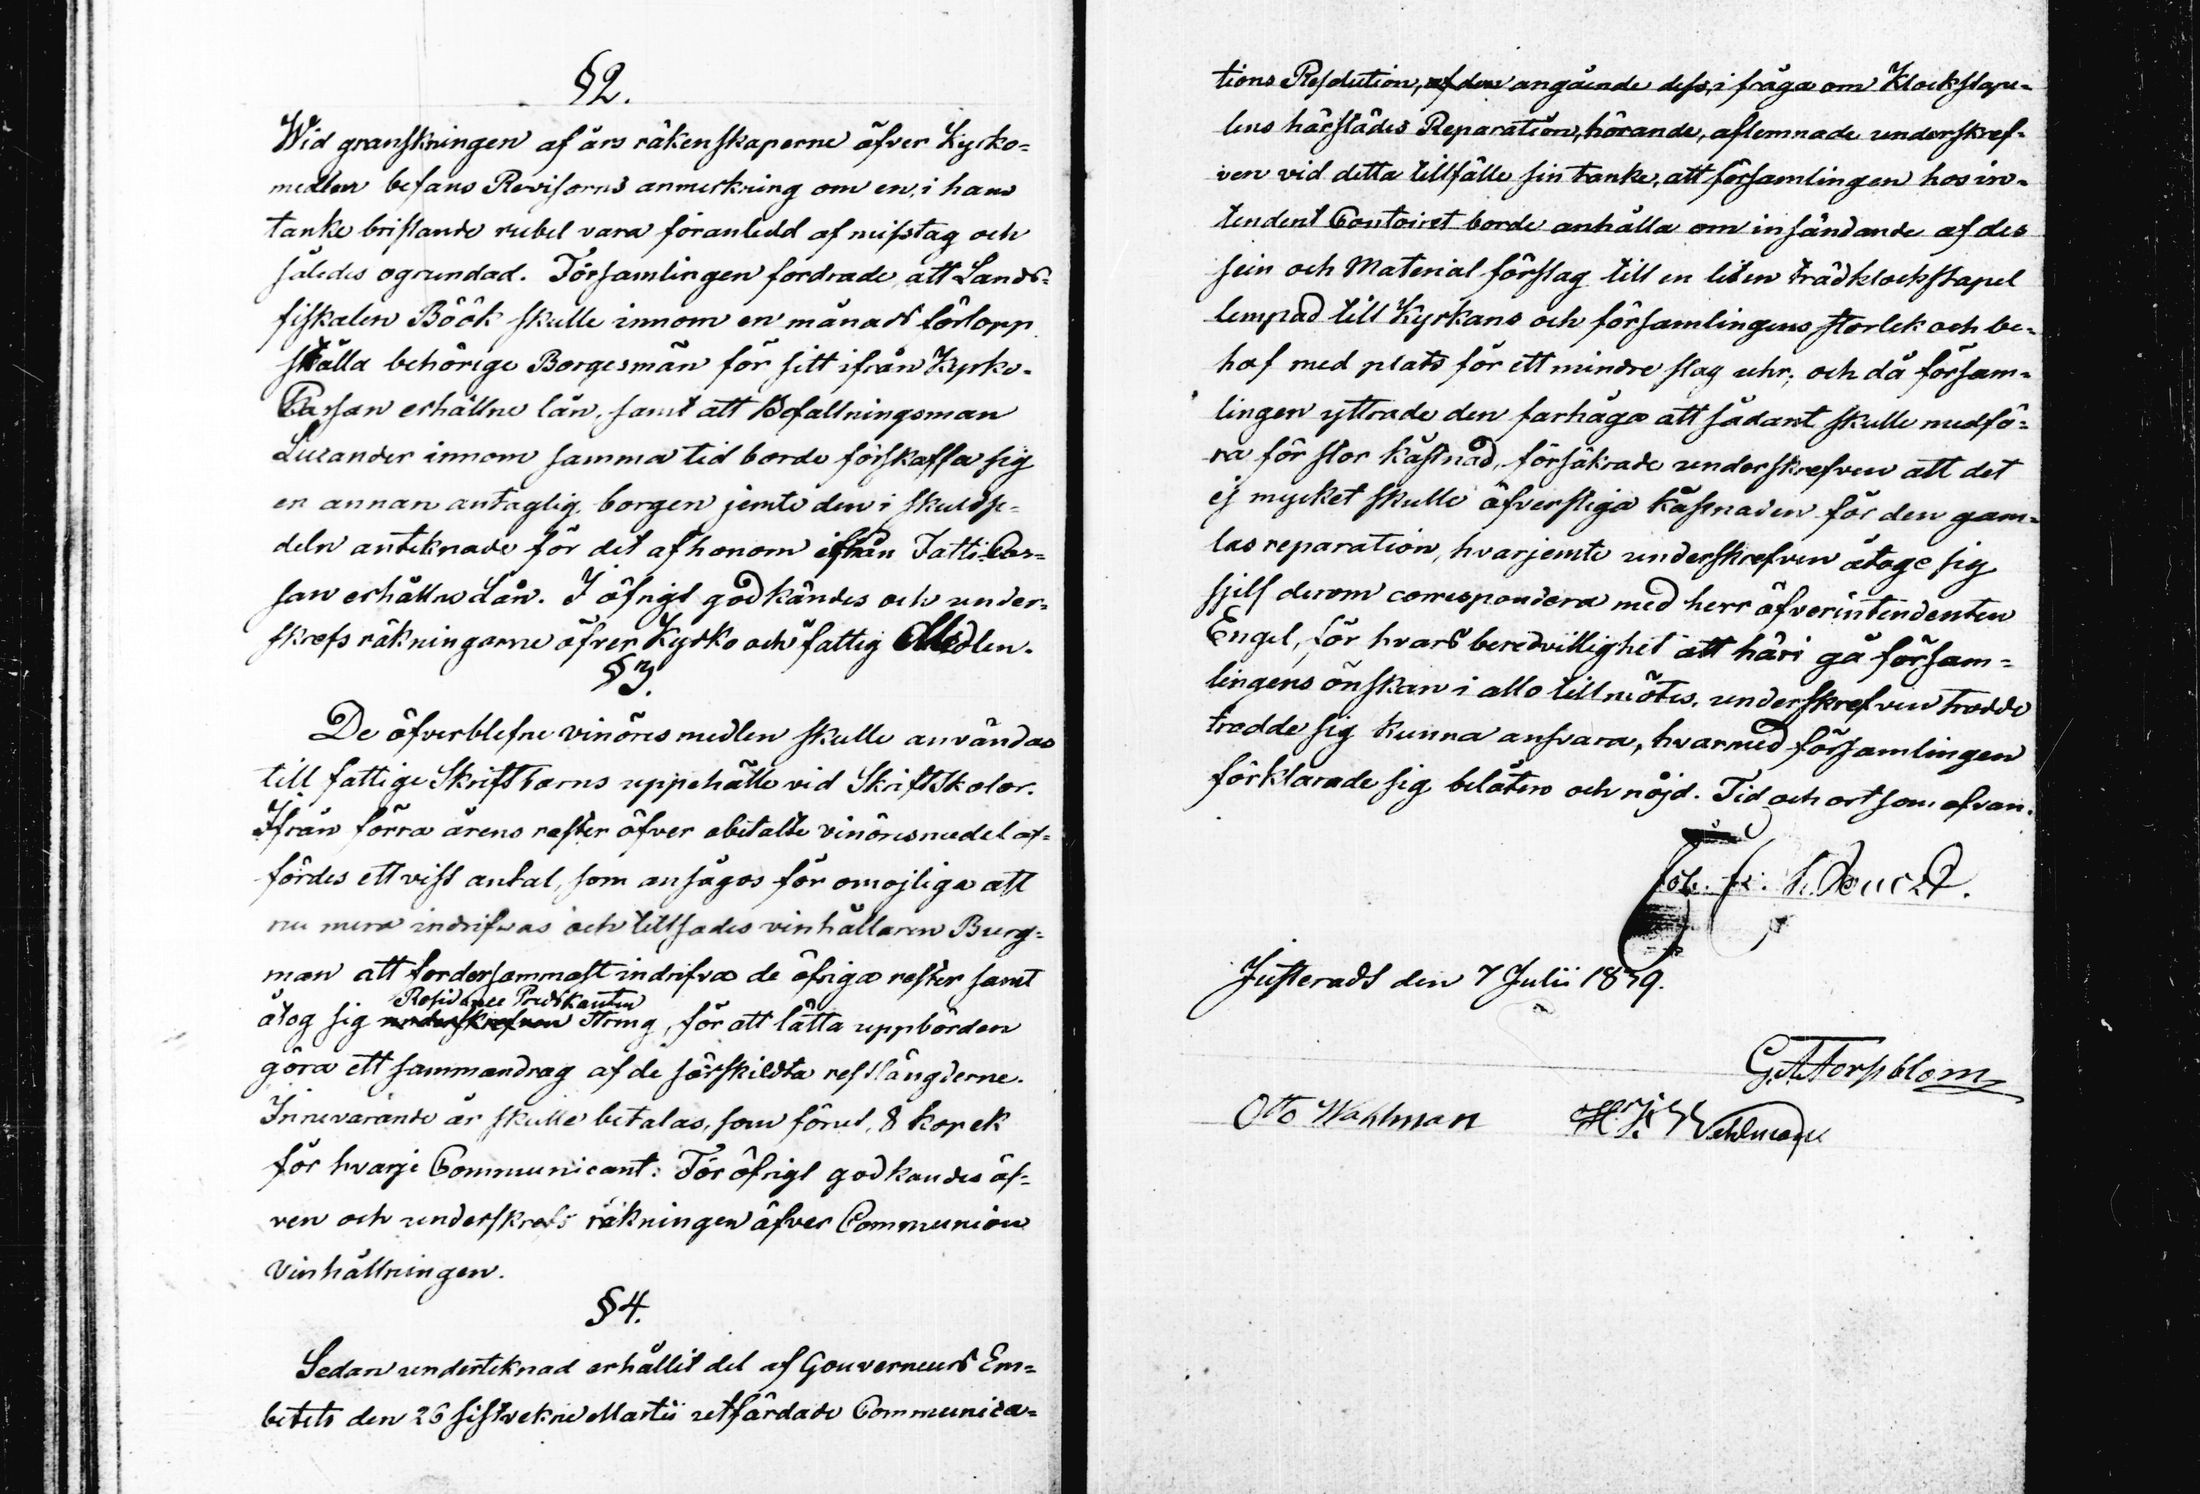 §2.
Wid granskningen af års räkenskaperne öfver Kyrko=
medlen befans Revisorns anmerkning om en, i hans
tanke bristande rubel vara föranledd af misstag och
således ogrundad. Församlingen fordrade att Lands=
fiskalen Böök skulle innom en månads förlopp
ställa behörige Borgesmän för sitt ifrån Kyrko-
Cassan erhållne lån, samt att Befallningsman
Lucander innom samma tid borde förskaffa sig
en annan antaglig borgen jemte den i skuldse=
deln anteknade för det af honom ifrån Fatti-Cas=
san erhållne Lån. I öfrigt godkändes och under=
skrefs räkningarne öfver Kyrko och fattig Medlen.
§3.
De öfverblefne vinöresmedlen skulle användas
till fattige Skriftbarns uppehälle vid Skriftskolor.
Ifrån förra årens rester öfver obetalte vinöresmedel af=
fördes ett visst antal, som ansågos för omöjliga att
nu mera indrifvas och tillsades vinhållaren Burg=
man att fordersammast indrifva de öfriga rester samt
åtog sig underskrefven Residance Predikanten Hring, för att lätta uppbörden
göra ett sammandrag af de särskildta restlängderne.
Innevarande år skulle betalas, som förut, 8 kopek
för hvarje Communicant. För öfrigt godkändes äf=
ven och underskrefs räkningen öfver Communion
Vinhållningen.
§4.
Sedan underteknad erhållit del af Gouverneurs Em=
betets den 26 sistvekne Martii utfärdade Communica=
tions Resolution, af den angående dess, i fråga om Klockstape=
lens härstädes Reparation, hörande, aflemnade underskref=
ven vid detta tillfälle sin tanke, att församlingen hos in=
tendent Contoiret borde anhålla om insändande af des
sein och Material förslag till en liten trädklockstapel
lempad till Kyrkans och församlingens storlek och be=
hof med plats för ett mindre slag uhr; och då försam=
lingen yttrade den farhåga att sådant skulle medfö=
ra för stor kåstnad, försäkrade underskrefven att det
ej mycket skulle öfverstiga kåstnaden för den gam=
las reparation, hvarjemte underskrefven åtoge sig
sjelf derom correspondera med herr öfverintendenten
Engel, för hvars beredvillighet att häri gå försam=
lingens önskan i allo till mötes, underskrefven trodde
trodde sig kunna ansvara, hvarmed församlingen
förklarade sig belåten och nöjd. Tid och ort som ofvan.
Justerads den 7 Julii 1839.
G. A. Forssblom
Otto Wahlman